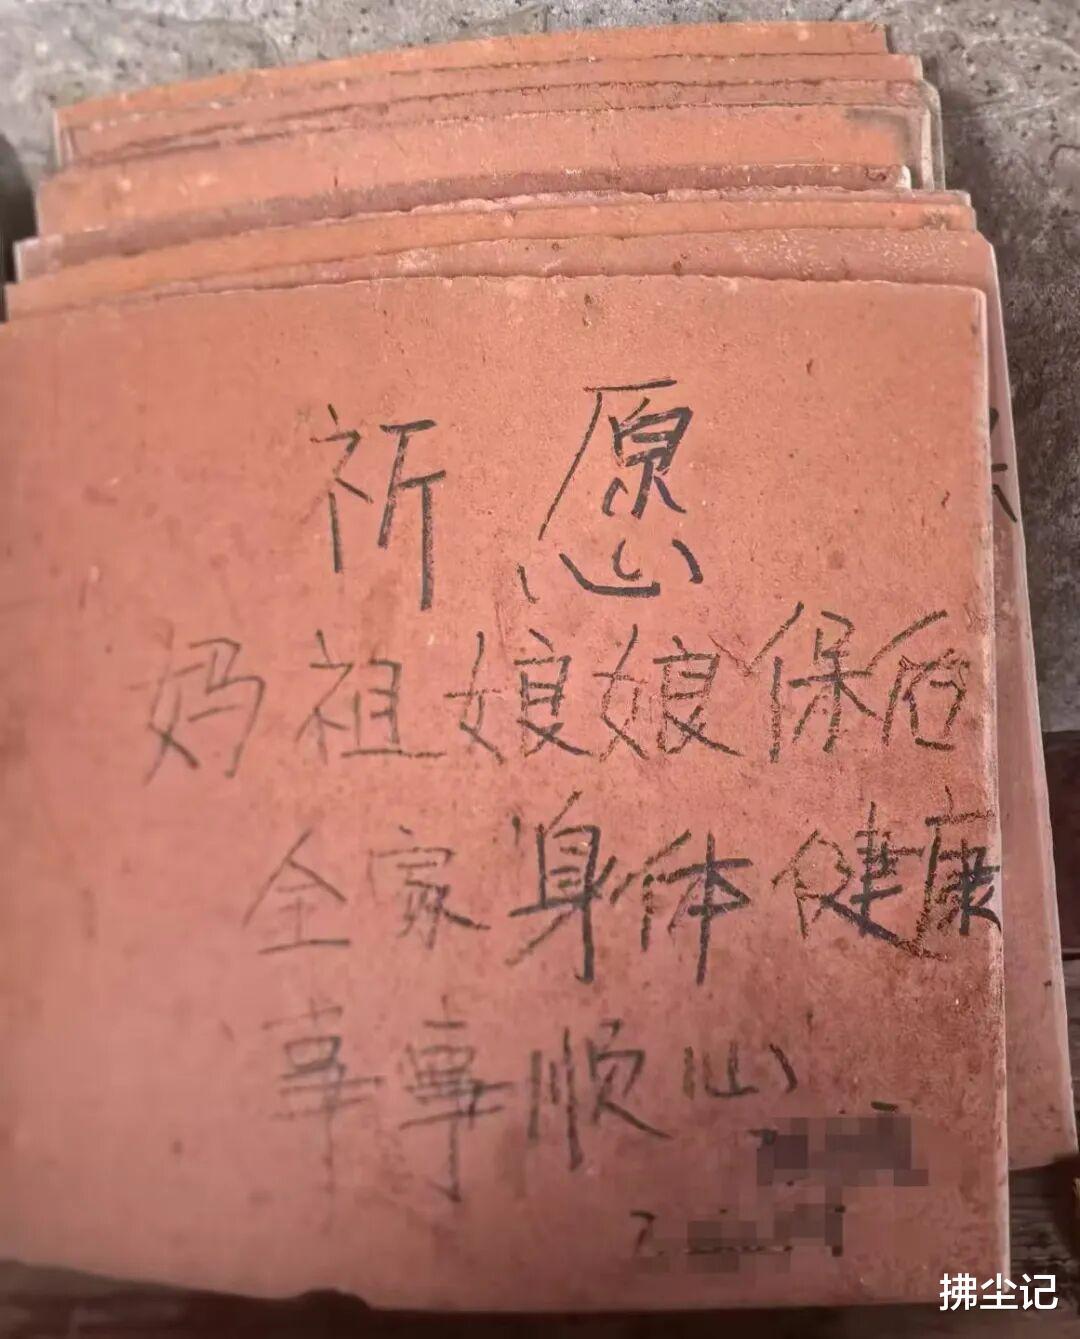 祈愿
妈祖娘娘保佑
全家身体健康
事事顺心
拂尘记